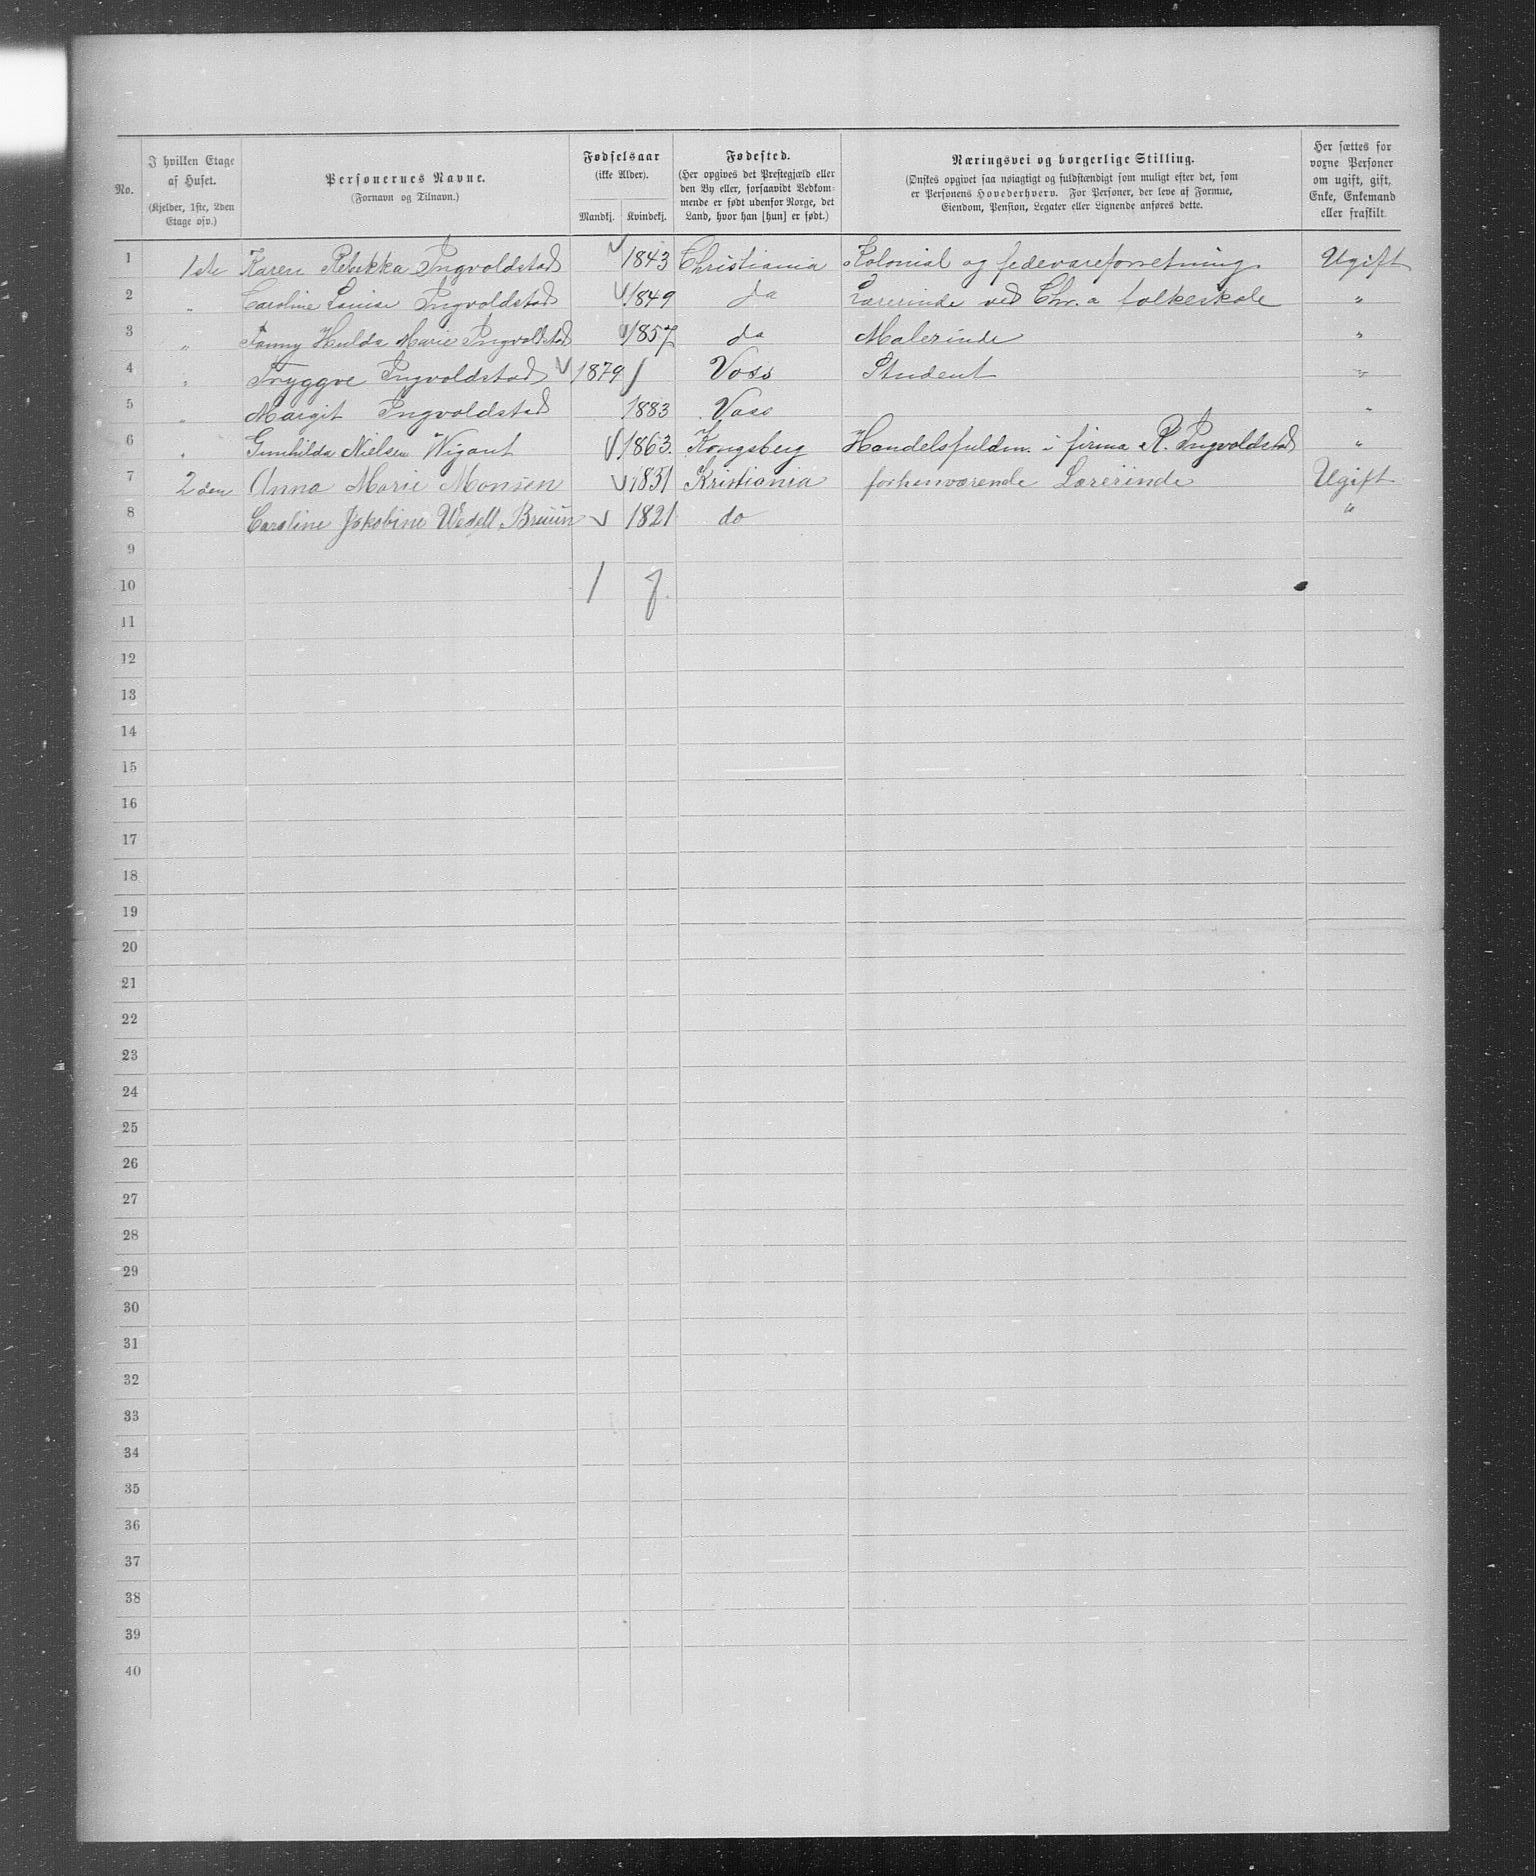 No.
I hvilken Etage
af Huset.
(Kjelder, 1ste, 2den
Etage osv.)
Personernes Navne.
(Fornavn og Tilnavn.)
Fødselsaar
(ikke Alder).
Mandkj. Kvindekj.
Fødested.
(Her opgives det Prestegjæld eller
den By eller, forsaavidt Vedkom-
mende er født udenfor Norge, det
Land, hvor han [hun] er født.)
Næringsvei og borgerlige Stilling.
(Ønskes opgivet saa nøiagtigt og fuldstændigt som muligt efter det, som
er Personens Hovederhverv. For Personer, der leve af Formue,
Eiendom, Pension, Legater eller Lignende anføres dette.
Her sættes for
voxne Personer
om ugift, gift,
Enke, Enkemand
eller fraskilt.
1 1ste Karen Rebekka Ingvoldstad 1843 Christiania Kolonial og fedevareforretning Ugift
2 " Caroline Louise Ingvoldstad 1849 do Lærerinde ved Chr.a folkeskole "
3 " Fanny Hulda Marie Ingvoldstad 1857 do Malerinde "
4 " Tryggve Ingvoldstad 1879 Voss Student "
5 " Margit Ingvoldstad 1883 Voss "
6 " Gunhilda Nielsen Wigant 1863. Kongsberg Handelsfuldm. i firma R. Ingvoldstad "
7 2den Anna Marie Monsen 1831 Kristiania forhenværende Lærerinde Ugift
8 Caroline Jakobine Wedell Bruun 1821 do "
9
10 1 7
11
12
13
14
15
16
17
18
19
20
21
22
23
24
25
26
27
28
29
30
31
32
33
34
35
36
37
38
39
40